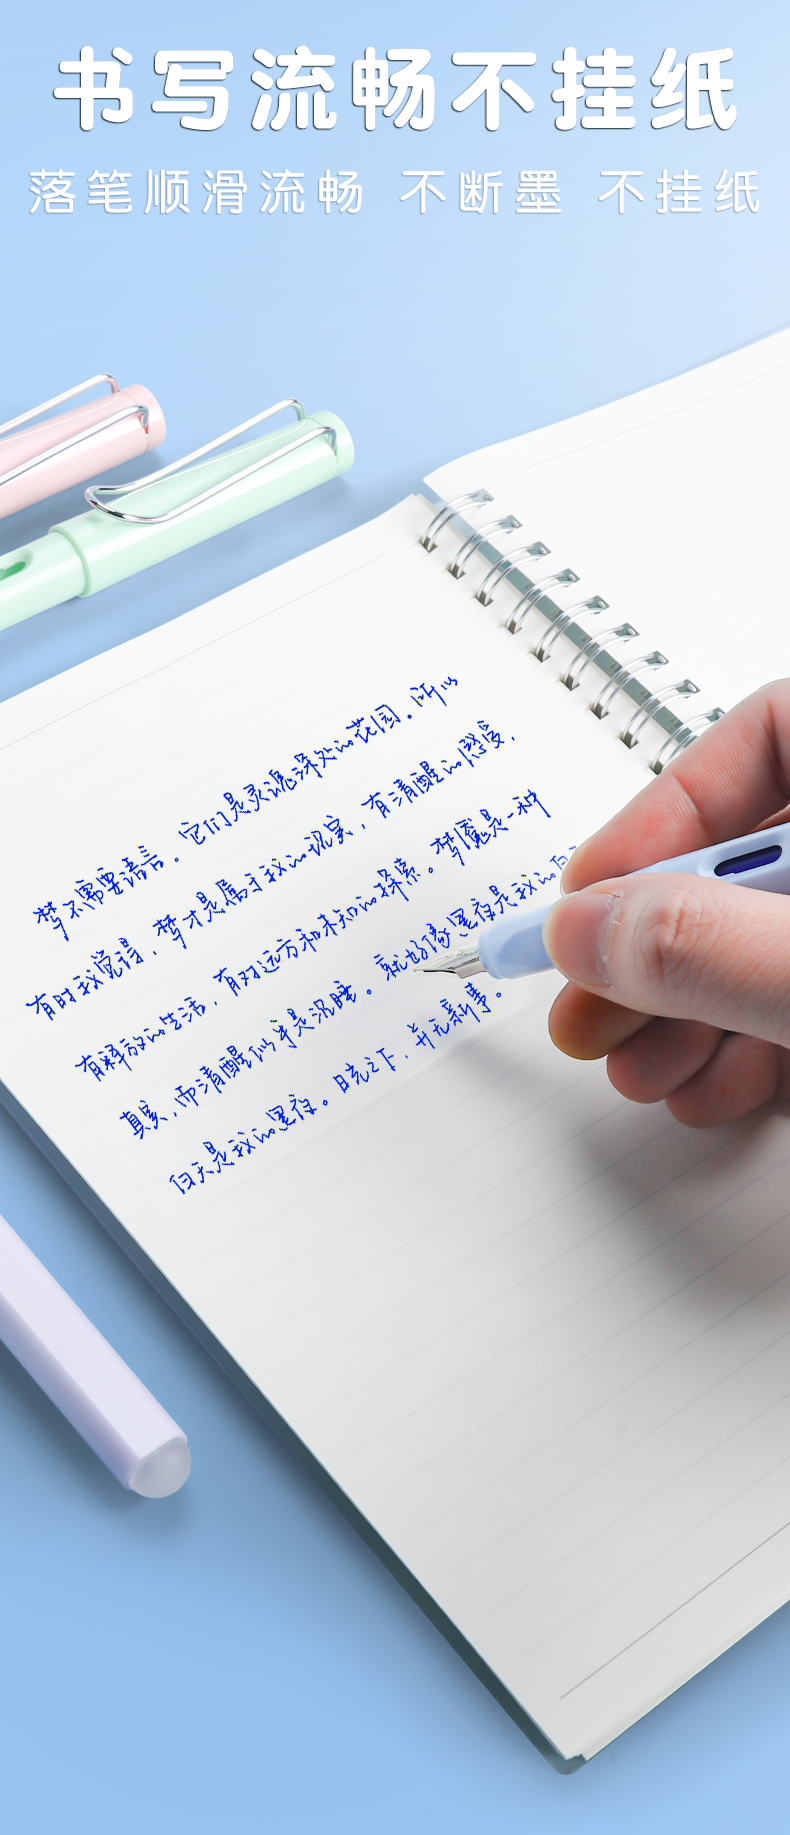 书写流畅不挂纸
落笔顺滑流畅 不断墨 不挂纸
梦不需要语言。它们是灵魂深处的花园。所以
有时我觉得，梦才是属于我的现实，有清醒的感受，
有释放的生活，有对远方和未知的探索。梦魇是一种
真实，而清醒似乎是沉睡。就好像黑夜是我的白
白天是我的黑夜。日光之下，并无新事。